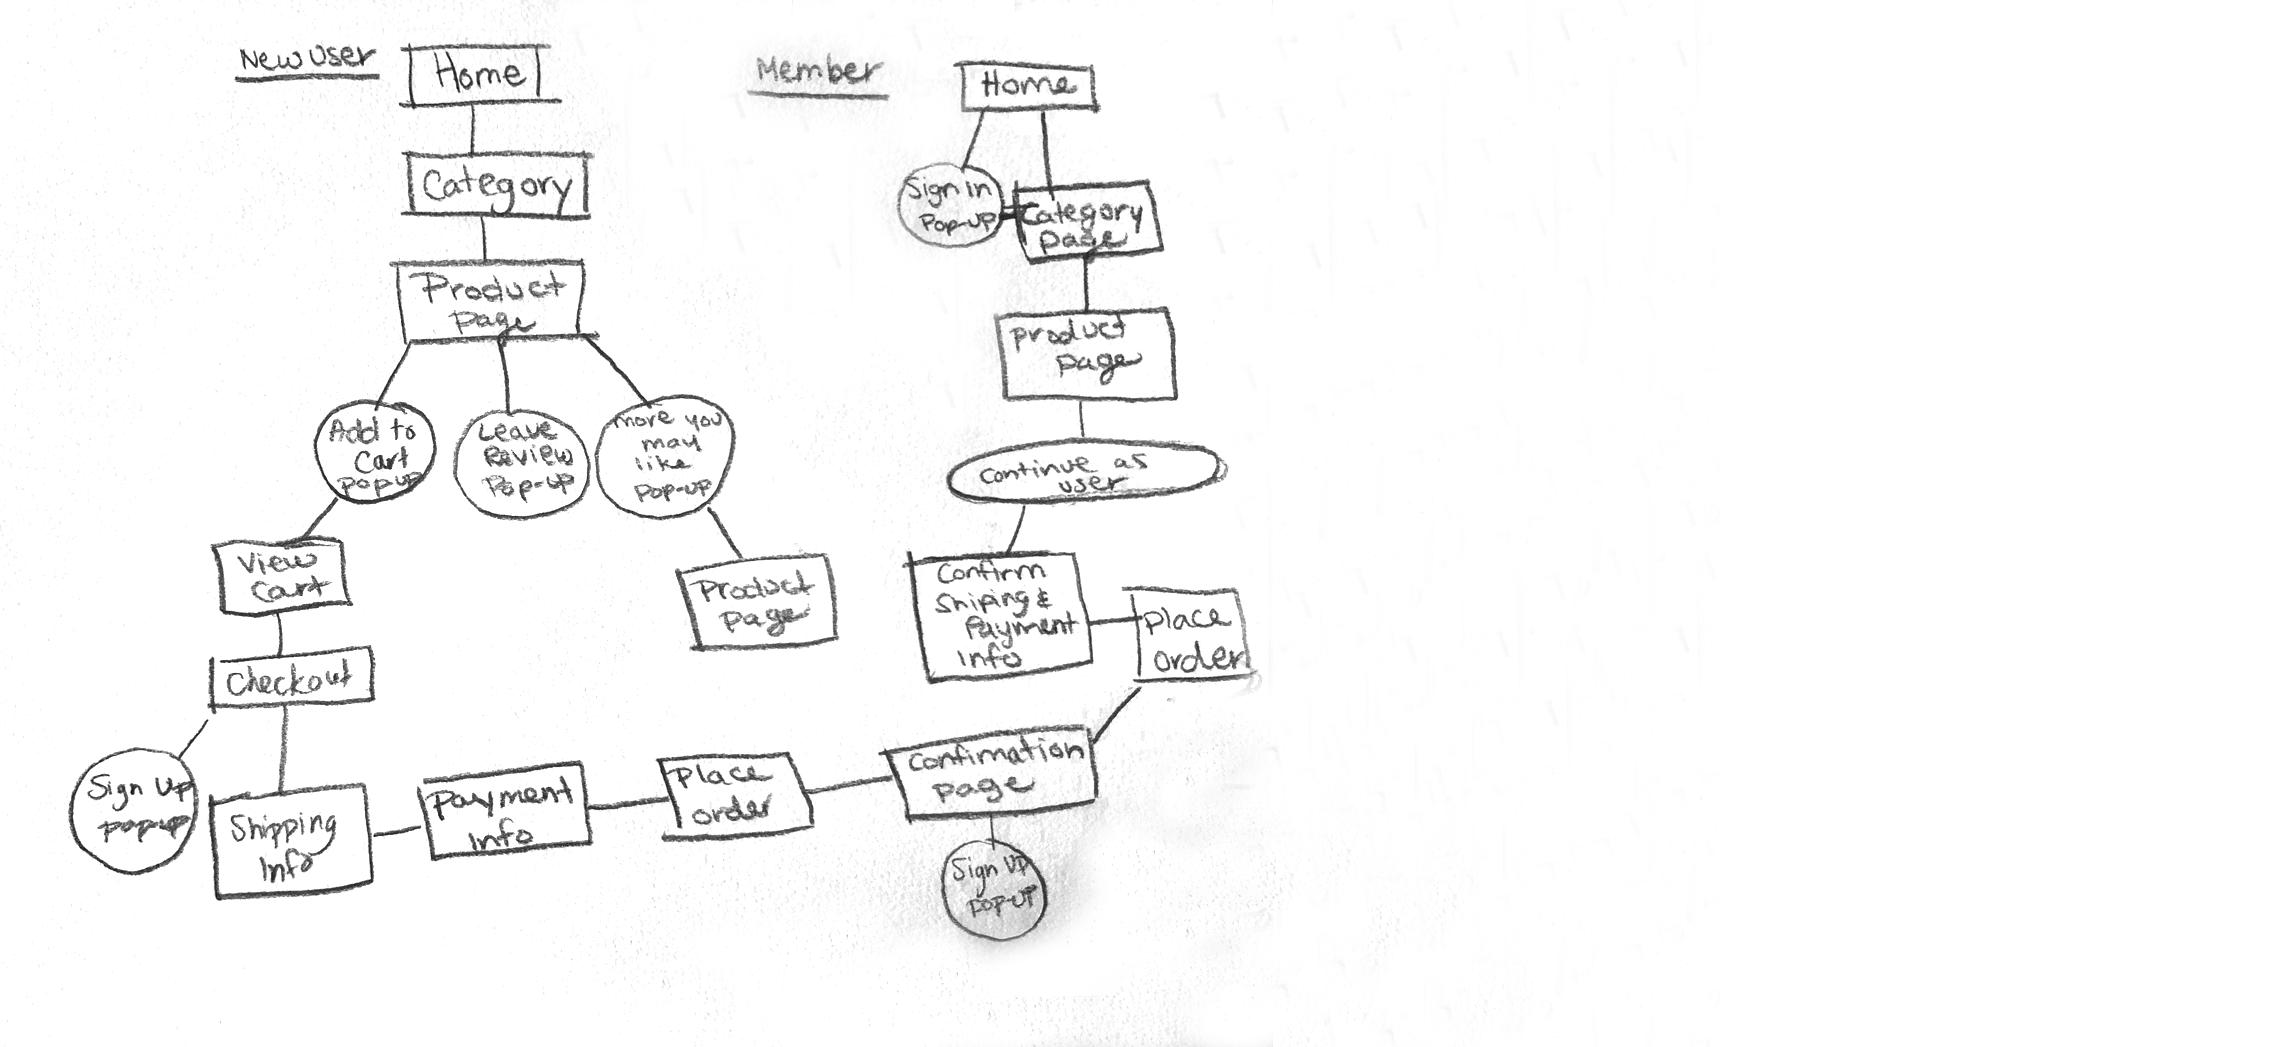 New User
Home
Category
Product
page
Add to
Cart
popup
Leave
Review
Pop-up
more you
may
like
Pop-up
View
Cart
Product
page
Checkout
Sign Up
popup
Shipping
Info
Payment
Info
Place
order
Member
Home
Sign In
Pop-up
Category
page
product
page
Continue as
user
Confirm
Shiping &
Payment
info
Place
order
Confirmation
page
Sign Up
Pop-up